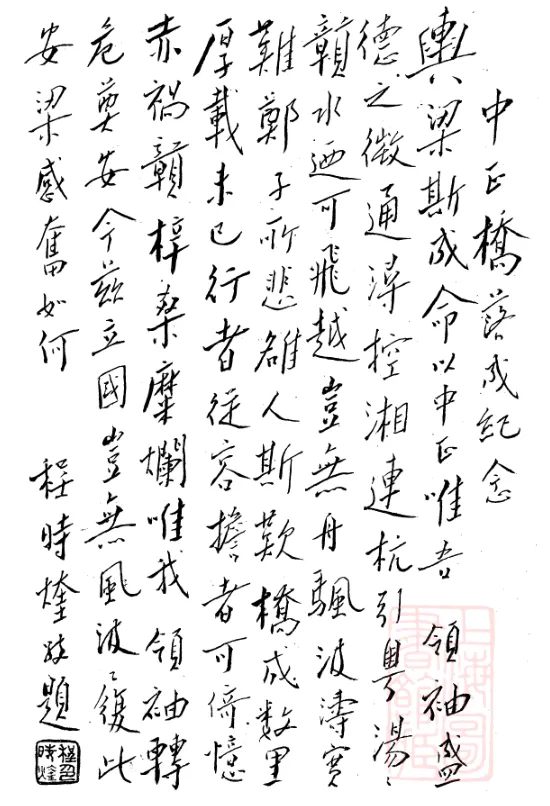 中正橋落成紀念
輿梁斯成命以中正唯吾 領袖盛
德之徵通潯控湘連杭引粵湯〻
贛水迺可飛越豈無舟颿波濤實
難鄭子所悲雒人斯歎橋成數里
厚載未已行者從容擔者可倚憶
赤禍贛梓桑糜爛唯我 領袖轉
危奠安今茲立國豈無風波履此
安梁感奮如何
程時煃敬題